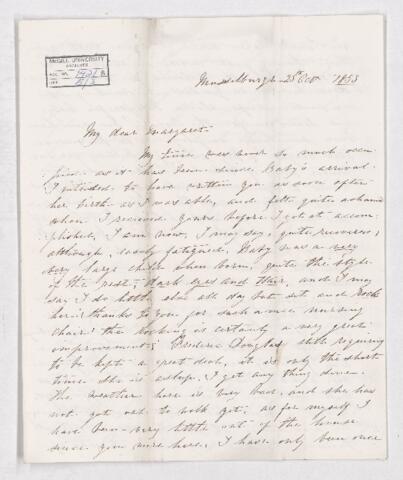 McGILL UNIVERSITY
ARCHIVES
ACC. NO.
REF.
Musselburgh 25th Oct 1853
My dear Margaret
My time was never so much occu
pied as it has been since Baby's arrival.
I intended to have written you as soon after
her birth as I was able, and felt quite ashamed
when I received yours before I got it accom-
plished, I am now, I may say, quite recovered,
although easily fatigued, Baby was a very
very large child when born, quite the style
of the rest, dark eyes and Hair, and I may
say I do little else all day but sit and rock
her: thanks to you for such a nice nursing
chair: the rocking is certainly a very great
improvement; Frederic Douglas still requiring
to be kept a great deal, it is only the short
time she is asleep, I get any thing done.
The weather here is very bad, and she has
not got out to walk yet; as for myself I
have been very little out of the house
since you were here, I have only been once